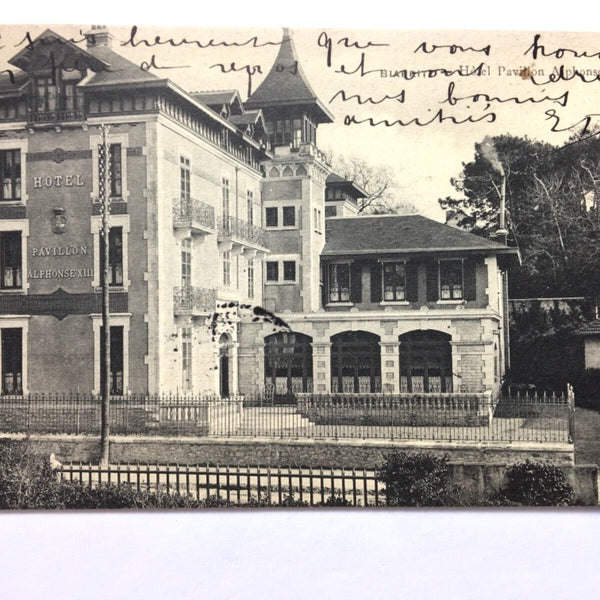 suis heureuse que vous
peu de repos et vous
nos bonnes
amitiés
BIARRITZ - Hôtel Pavillon Alphonse
HOTEL
PAVILLON
ALPHONSE XIII